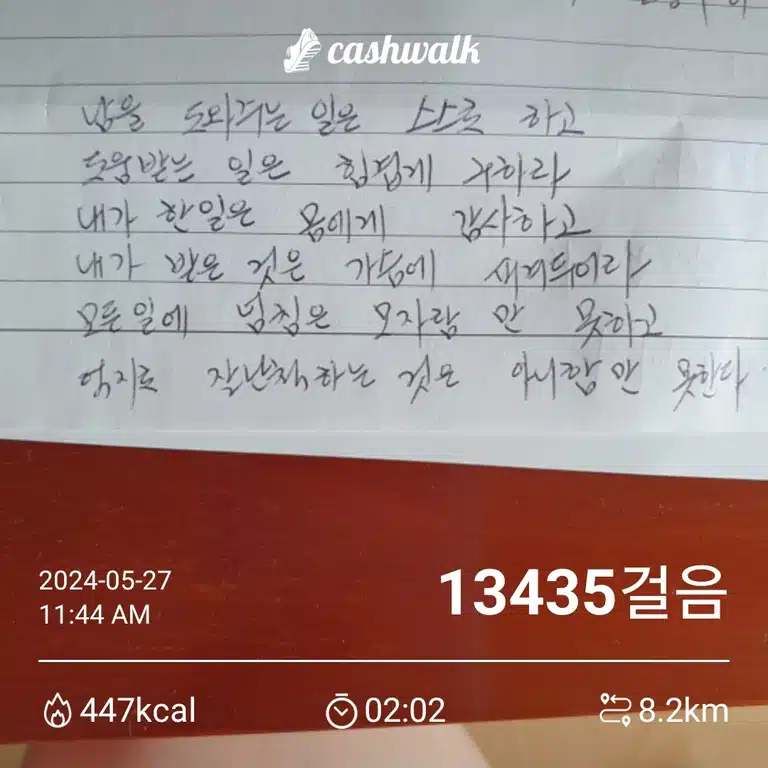 cashwalk
남을 도와주는 일은 스스로 하고
도움받는 일은 힘겹게 구하라
내가 한일은 몸에게 감사하고
내가 받은 것은 가슴에 새겨두어라
모든일에 넘침은 모자람 만 못하고
억지로 잘난척하는 것은 아니함 만 못한다
2024-05-27
11:44 AM
13435걸음
447kcal
02:02
8.2km